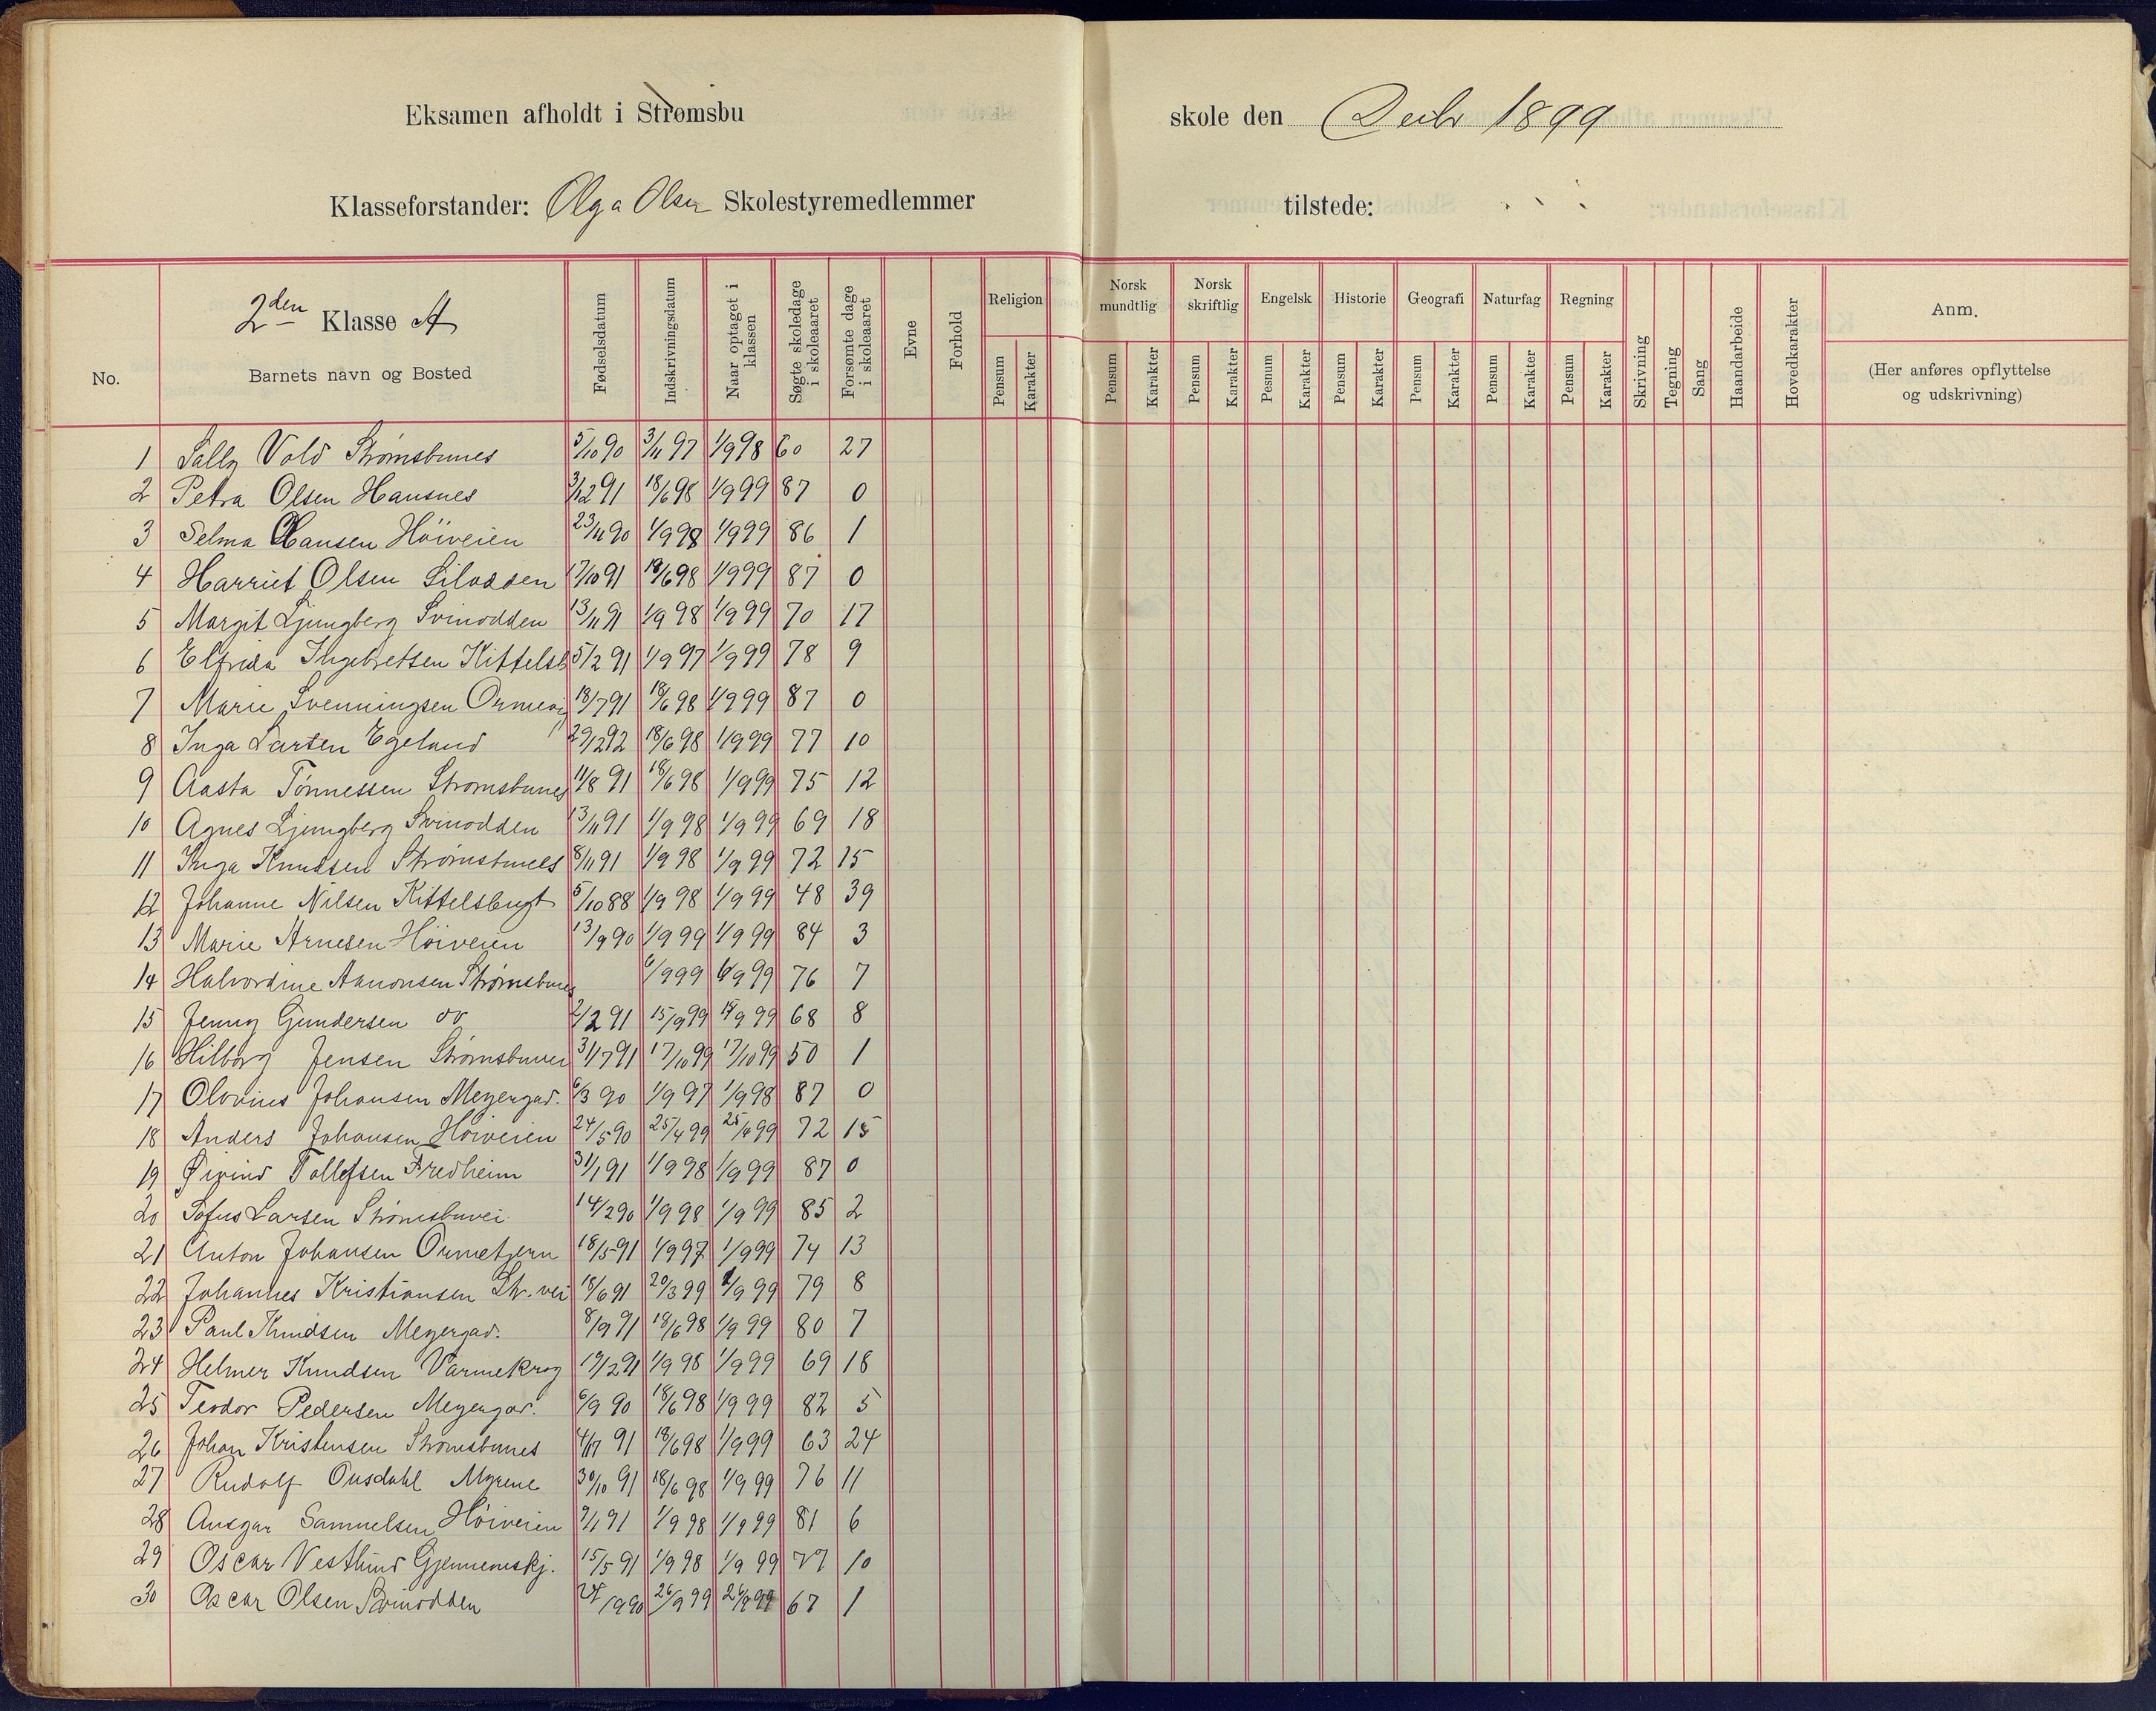 Eksamen afholdt i Strømsbu skole den Decbr 1899
Klasseforstander: Olga Olsen Skolestyremedlemmer tilstede:
No.
2den Klasse A
Barnets navn og Bosted
Fødselsdatum
Indskrivningsdatum
Naar optaget i klassen
Søgte skoledage i skoleaaret
Forsømte dage i skoleaaret
Evne
Forhold
Religion
Pensum Karakter
Norsk mundtlig
Pensum Karakter
Norsk skriftlig
Pensum Karakter
Engelsk
Pesnum Karakter
Historie
Pensum Karakter
Geografi
Pensum Karakter
Naturfag
Pensum Karakter
Regning
Pensum Karakter
Skrivning
Tegning
Sang
Haandarbeide
Hovedkarakter
Anm.
(Her anføres opflyttelse og udskrivning)
1 Sally Vold Strømsbunes 5/10 90 3/11 97 1/9 98 60 27
2 Petra Olsen Hansnes 3/12 91 18/6 98 1/9 99 87 0
3 Selma Hansen Höiveien 23/11 90 1/9 98 1/9 99 86 1
4 Harriet Olsen Silodden 17/10 91 18/6 98 1/9 99 87 0
5 Margit Ljungberg Svinodden 13/11 91 1/9 98 1/9 99 70 17
6 Elfrida Ingebretsen Kittelsb 5/2 91 1/9 97 1/9 99 78 9
7 Marie Svenningsen Ormevig 18/7 91 18/6 98 1/9 99 87 0
8 Inga Larsen Egeland 29/12 92 18/6 98 1/9 99 77 10
9 Aasta Tönnessen Stromsbunes 11/8 91 18/6 98 1/9 99 75 12
10 Agnes Ljungberg Svinodden 13/11 91 1/9 98 1/9 99 69 18
11 Inga Knudsen Strømsbunes 8/11 91 1/9 98 1/9 99 72 15
12 Johanne Nilsen Kittelsbugt 5/10 88 1/9 98 1/9 99 48 39
13 Marie Arnesen Höiveien 13/9 90 1/9 99 1/9 99 84 3
14 Halvordine Aanonsen Strømsbunes 6/9 99 6/9 99 76 7
15 Jenny Gundersen do 2/2 91 15/9 99 15/9 99 68 8
16 Hilborg Jensen Strømsbuvei 31/7 91 17/10 99 17/10 99 50 1
17 Olovius Johansen Meyergad. 6/3 90 1/9 97 1/9 98 87 0
18 Anders Johansen Höiveien 24/5 90 25/4 99 25/4 99 72 15
19 Øivind Tollefsen Fredheim 31/1 91 1/9 98 1/9 99 87 0
20 Sofus Larsen Strømsbuvei 14/2 90 1/9 98 1/9 99 85 2
21 Anton Johansen Ormetjern 18/5 91 1/9 97 1/9 99 74 13
22 Johannes Kristiansen Str. vei 18/6 91 20/3 99 1/9 99 79 8
23 Paul Knudsen Meyergad. 8/9 91 18/6 98 1/9 99 80 7
24 Helmer Knudsen Varmekrog 19/2 91 1/9 98 1/9 99 69 18
25 Teodor Pedersen Meyergad. 6/9 90 18/6 98 1/9 99 82 5
26 Johan Kristensen Stromsbunes 91 18/6 98 1/9 99 63 24
27 Rudolf Onsdahl Myrene 30/10 91 18/6 98 1/9 99 76 11
28 Ansgar Samuelsen Höiveien 9/1 91 1/9 98 1/9 99 81 6
29 Oscar Vestlund Gjennemskj. 15/5 91 1/9 98 1/9 99 77 10
30 Oscar Olsen Svinodden 90 26/9 99 26/9 99 67 1